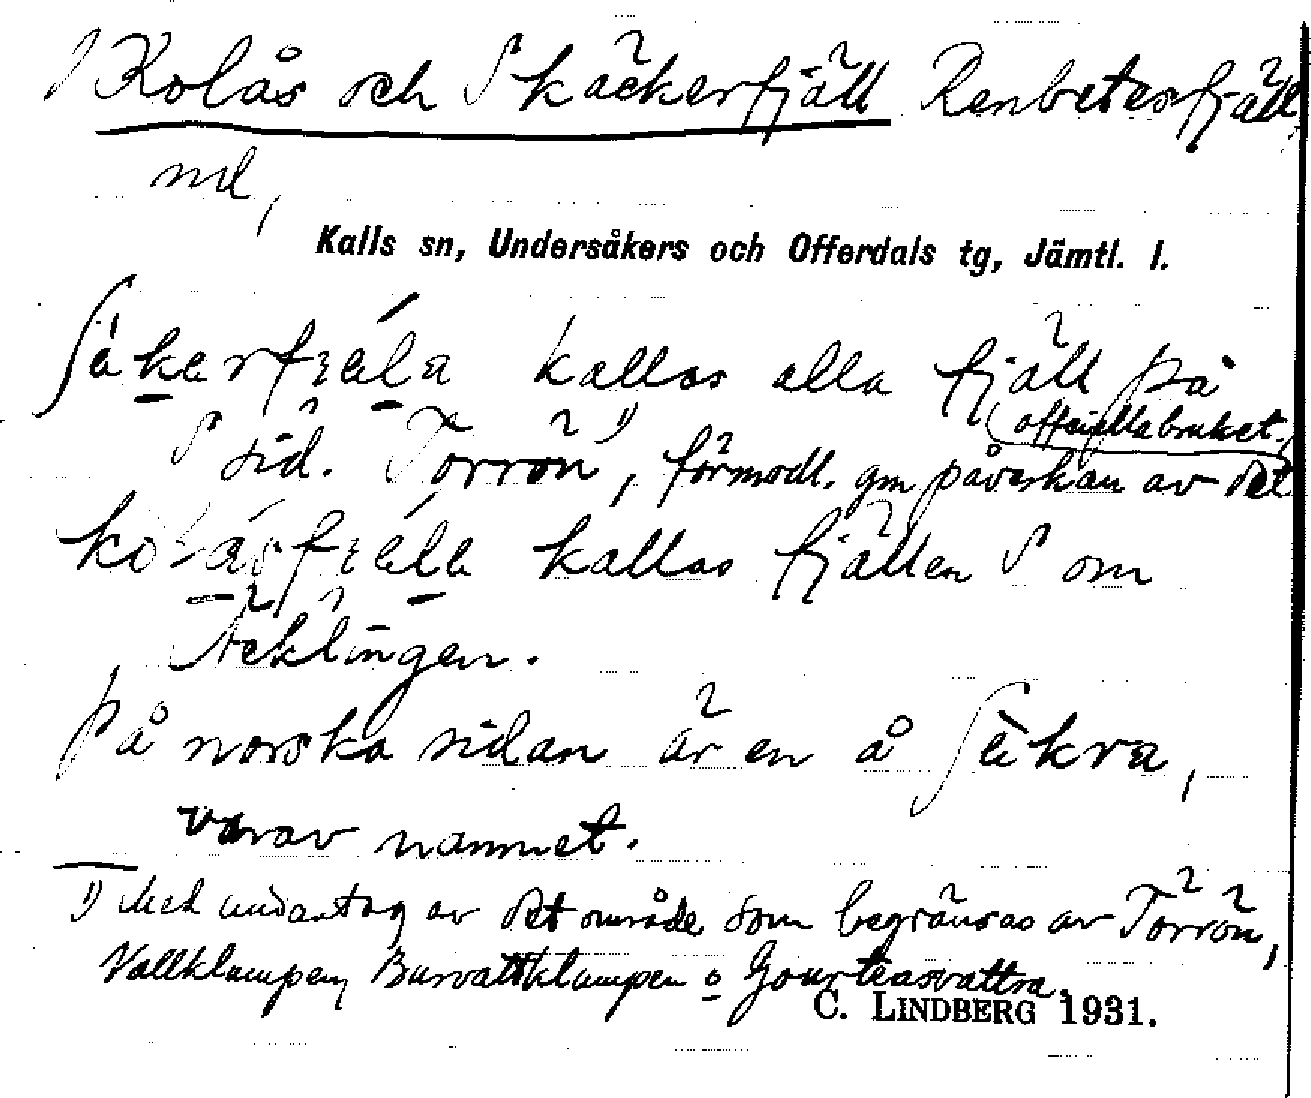 Kolås och Skäckerfjäll Renbetesfjäll
nd,
Kalls sn, Undersåkers och Offerdals tg, Jämtl. l.
kallas alla fjäll på
S sid. Torrön 1), förmodl. gm påverkan av det officiella bruket.
kallas fjällen S om
Äcklingen.
på norska sidan är en å
varav namnet.
1) Med undantag av det område som begränsas av Torrön,
Vallklumpen, Burvattklumpen o
C. LINDBERG 1931.